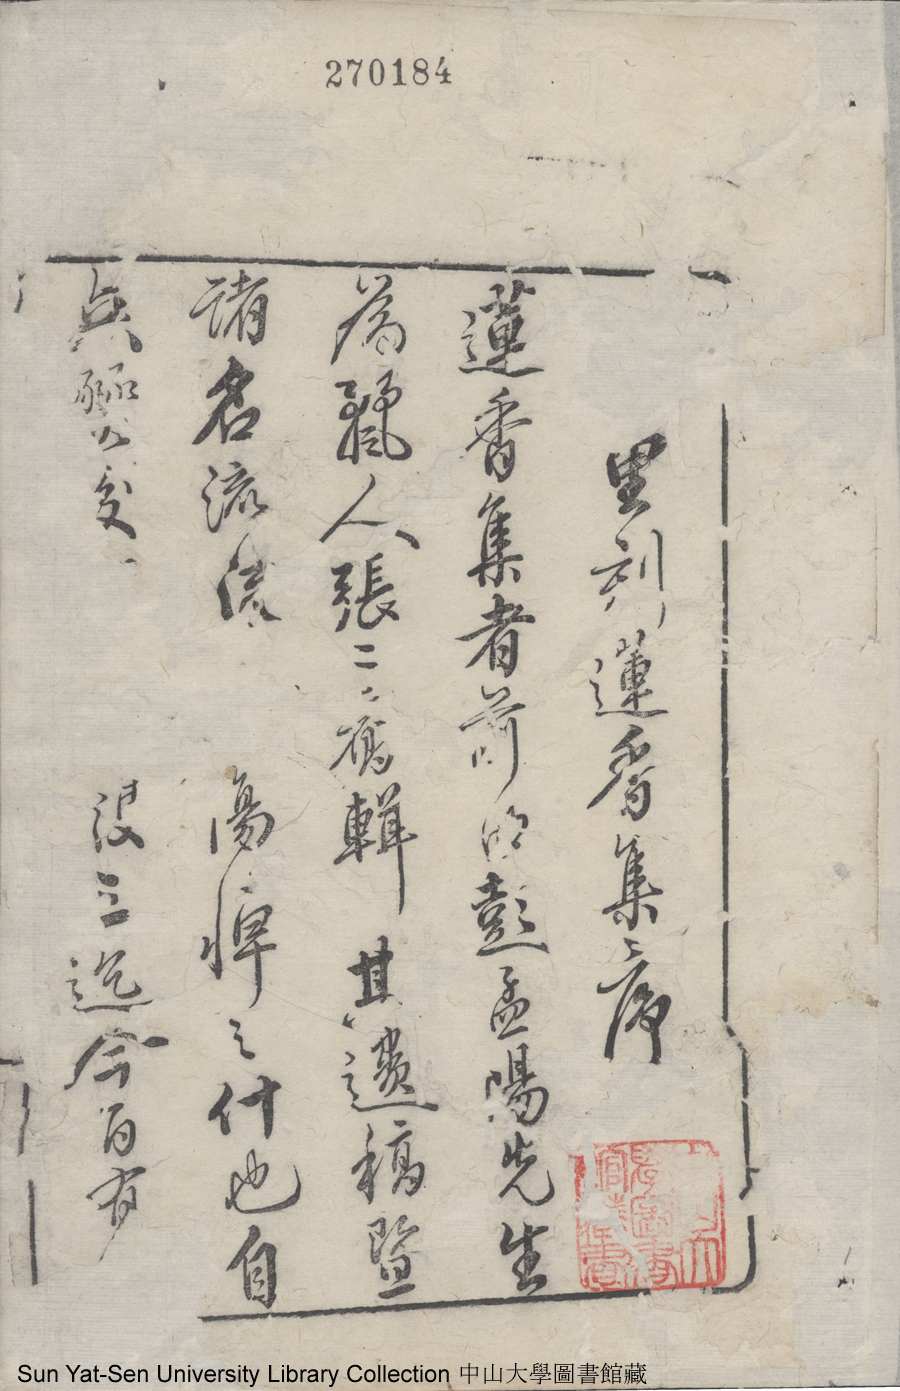 270184
里刻蓮香集序
蓮香集者前明彭孟陽先生
為麗人張二喬輯其遺稿暨
諸名流 傷悼之什也自
兵 變 板亡迄今百有
Sun Yat-Sen University Library Collection 中山大學圖書館藏